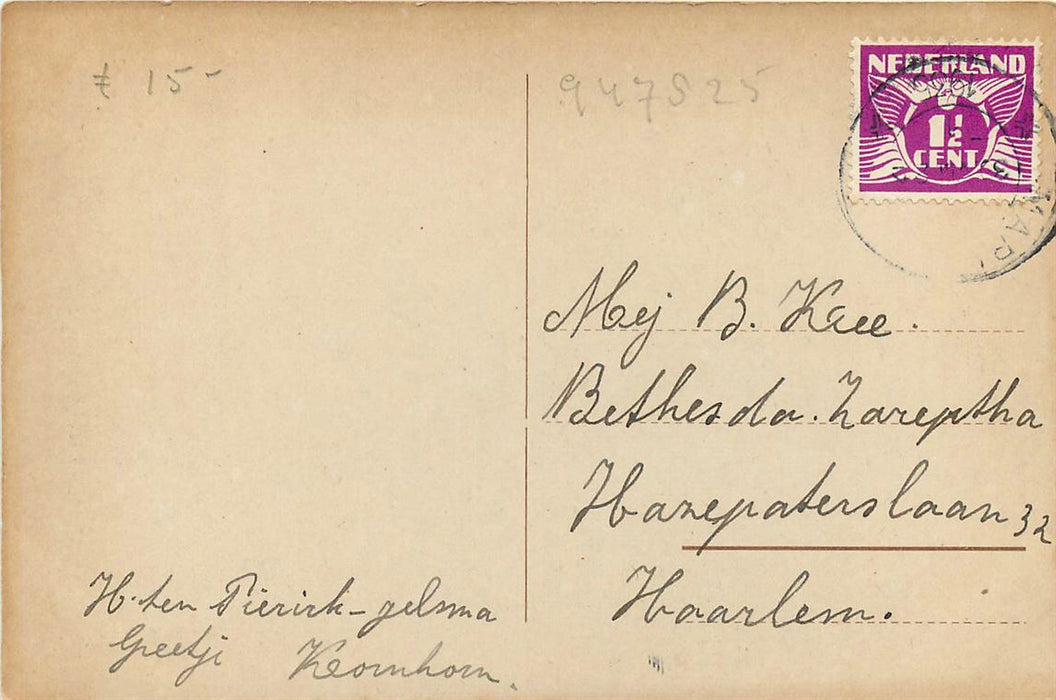 ₤ 15-
947825
NEDERLAND
1½
CENT
Mej B. Kree.
Bethesda. Zareptha
Hazepaterslaan 32
Haarlem.
H. ten -jelsma
Geetje Kornhorn.